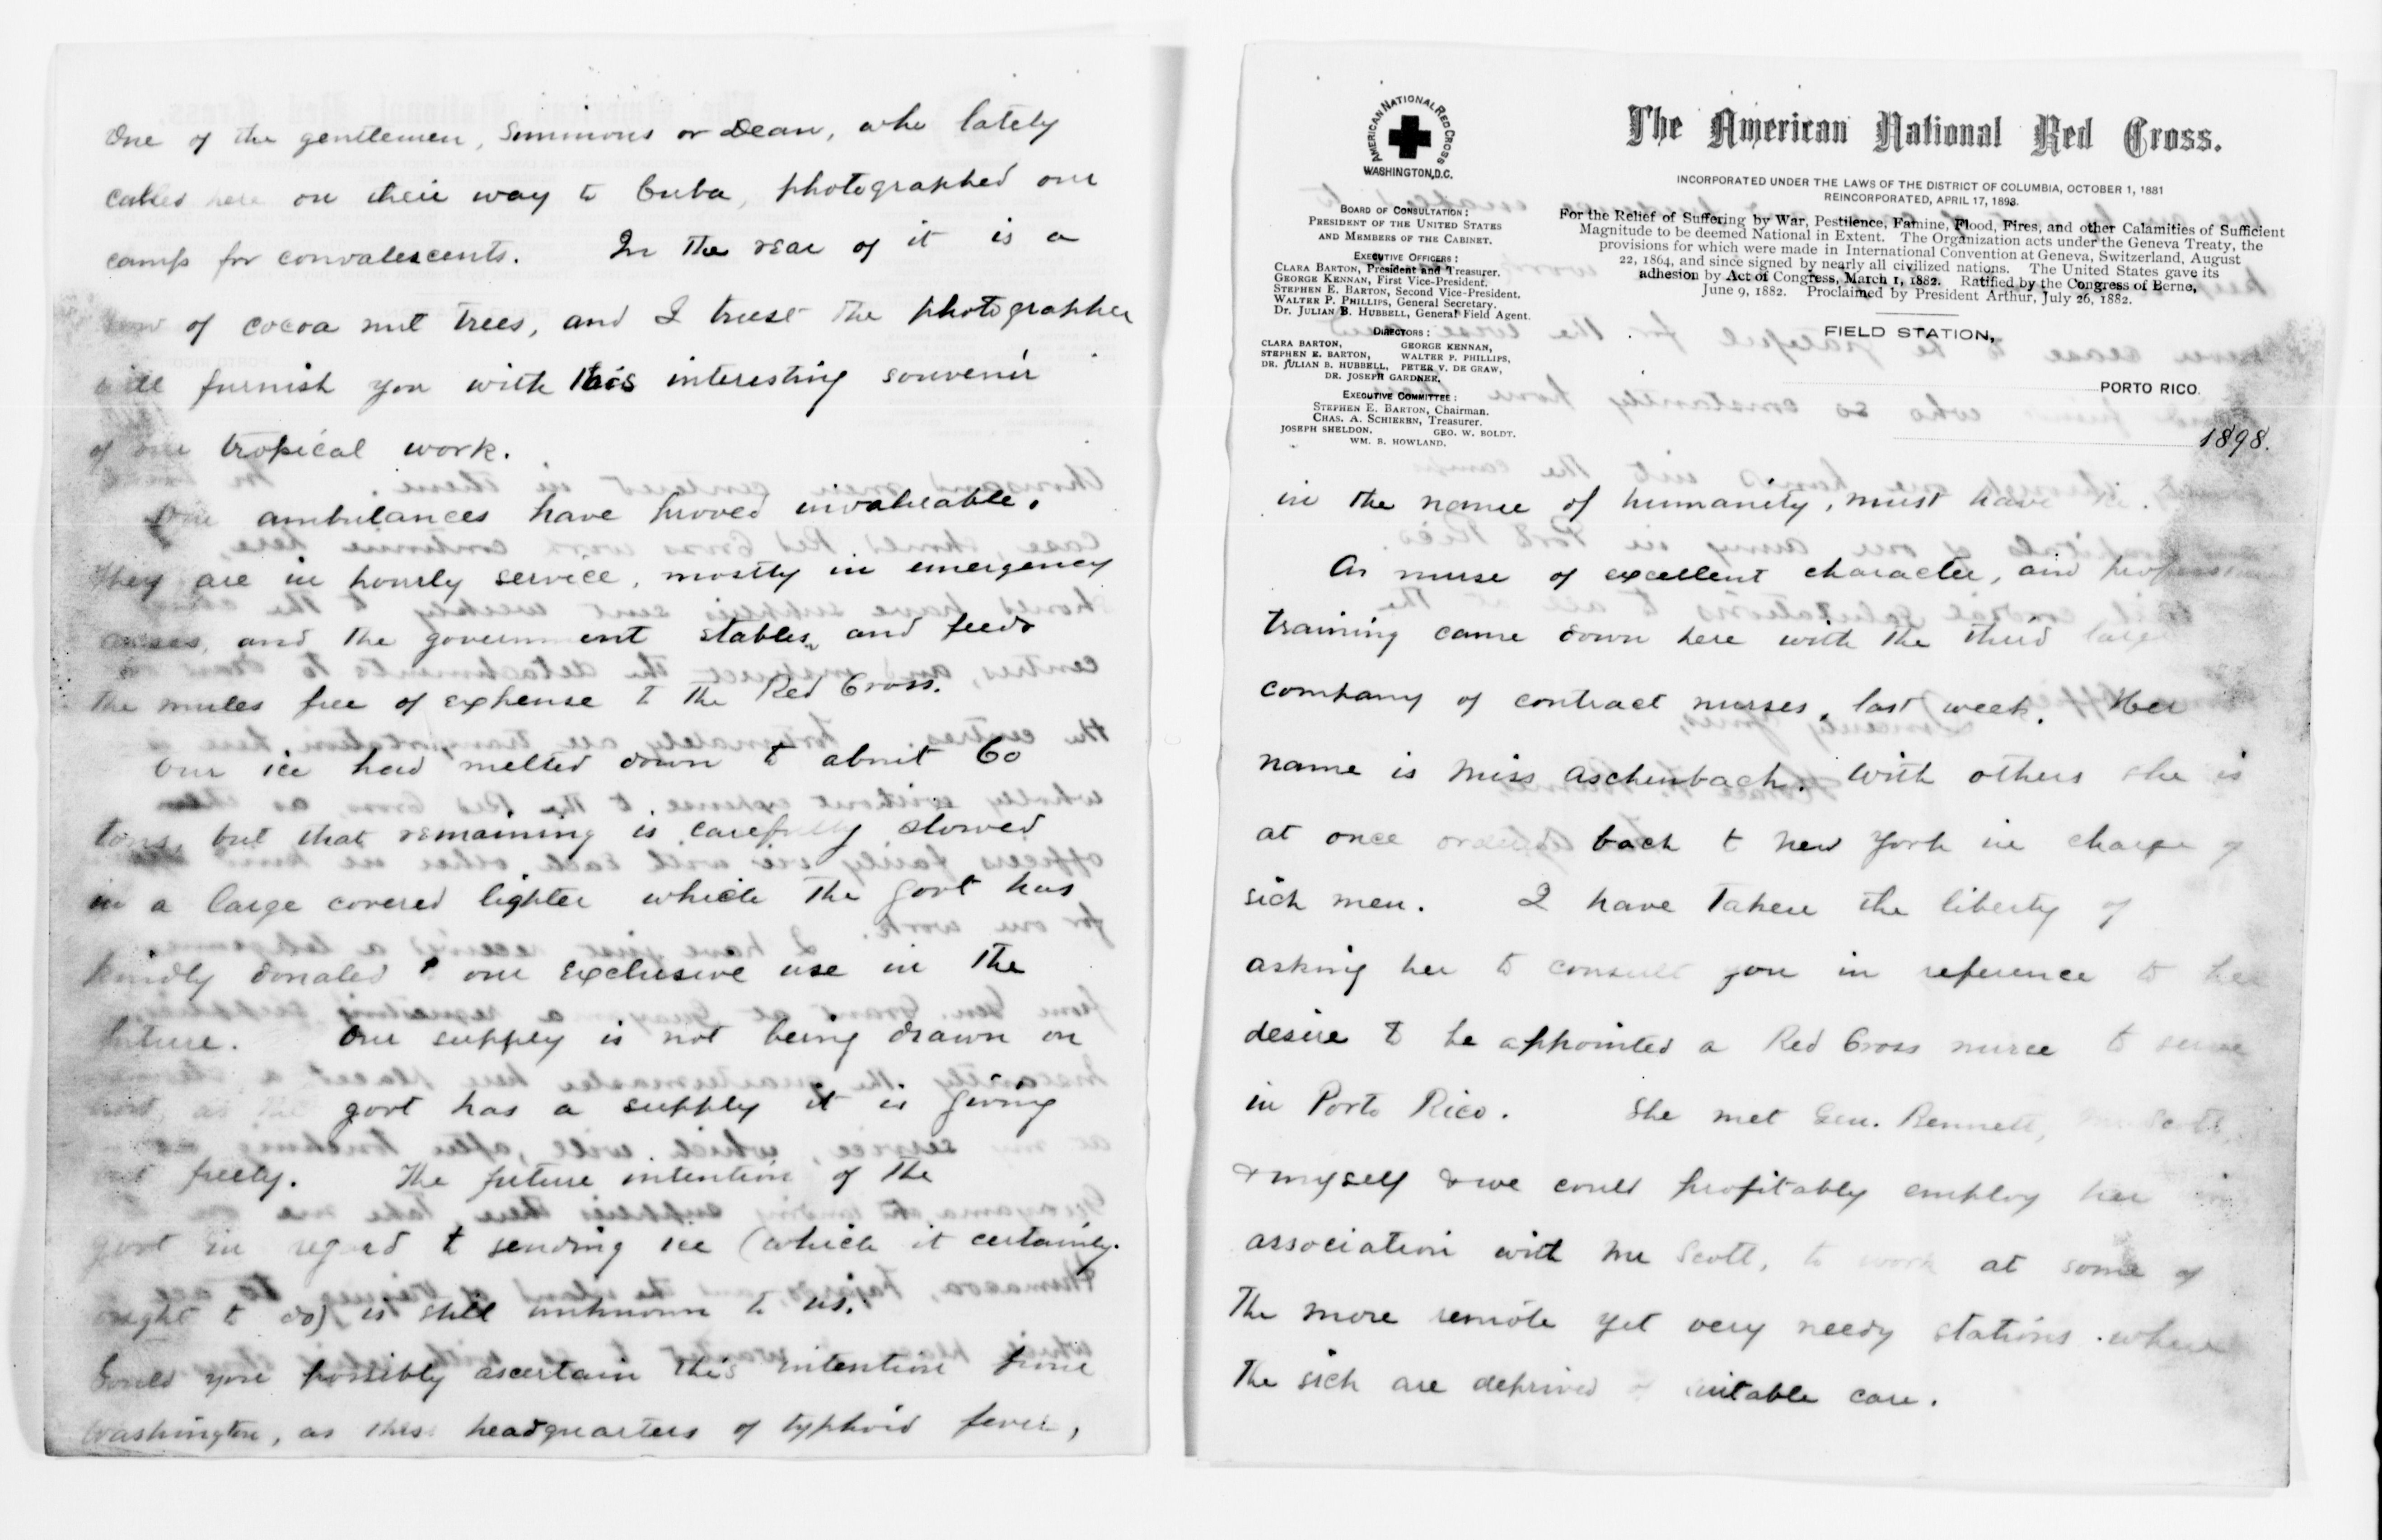 One of the gentlemen, Simmons or Dean, who lately
called here on their way to Cuba, photographed our
camp for convalescents. In the rear of it is a
row of cocoa nut trees, and I trust the photographer
will furnish you with this interesting souvenir
of our tropical work.
Our ambulances have proved invaluable.
They are in hourly service, mostly in emergency
cases, and the government stables, and feeds
the mules free of expense to the Red Cross.
Our ice had melted down to about 60
tons, but that remaining is carefully stowed
in a large covered lighter which the govt has
kindly donated to our exclusive use in the
future. Our supply is not being drawn on
as the govt has a supply it is giving
out freely. The future intention of the
govt in regard to sending ice (which it certainly
ought to do) is still unknown to us.
Could you possibly ascertain this intention from
Washington, as this headquarters of typhoid fever,
AMERICAN NATIONAL RED CROSS
WASHINGTON, D.C.
The American National Red Cross.
INCORPORATED UNDER THE LAWS OF THE DISTRICT OF COLUMBIA, OCTOBER 1, 1881
REINCORPORATED, APRIL 17, 1893.
For the Relief of Suffering by War, Pestilence, Famine, Flood, Fires, and other Calamities of Sufficient
Magnitude to be deemed National in Extent. The Organization acts under the Geneva Treaty, the
provisions for which were made in International Convention at Geneva, Switzerland, August
22, 1864, and since signed by nearly all civilized nations. The United States gave its
adhesion by Act of Congress, March 1, 1882. Ratified by the Congress of Berne,
June 9, 1882. Proclaimed by President Arthur, July 26, 1882.
BOARD OF CONSULTATION:
PRESIDENT OF THE UNITED STATES
AND MEMBERS OF THE CABINET.
EXECUTIVE OFFICERS:
CLARA BARTON, President and Treasurer.
GEORGE KENNAN, First Vice-President.
STEPHEN E. BARTON, Second Vice-President.
WALTER P. PHILLIPS, General Secretary.
Dr. JULIAN B. HUBBELL, General Field Agent.
DIRECTORS:
CLARA BARTON, GEORGE KENNAN,
STEPHEN E. BARTON, WALTER P. PHILLIPS,
DR. JULIAN B. HUBBELL, PETER V. DE GRAW,
DR. JOSEPH GARDNER.
EXECUTIVE COMMITTEE:
STEPHEN E. BARTON, Chairman.
CHAS. A. SCHIEREN, Treasurer.
JOSEPH SHELDON, GEO. W. BOLDT.
WM. B. HOWLAND.
FIELD STATION,
PORTO RICO.
1898.
in the name of humanity, must have
A nurse of excellent character, and
training came down here with the third large
company of contract nurses, last week. Her
name is Miss Aschenbach. With others she is
at once ordered back to New York in charge of
sick men. I have taken the liberty of
asking her to consult you in reference to her
desire to be appointed a Red Cross nurse to serve
in Porto Rico. She met Gen. Bennett, Mr Scott,
& myself & we could profitably employ her in
association with Mr Scott, to work at some of
the more remote yet very needy stations where
the sick are deprived of suitable care.